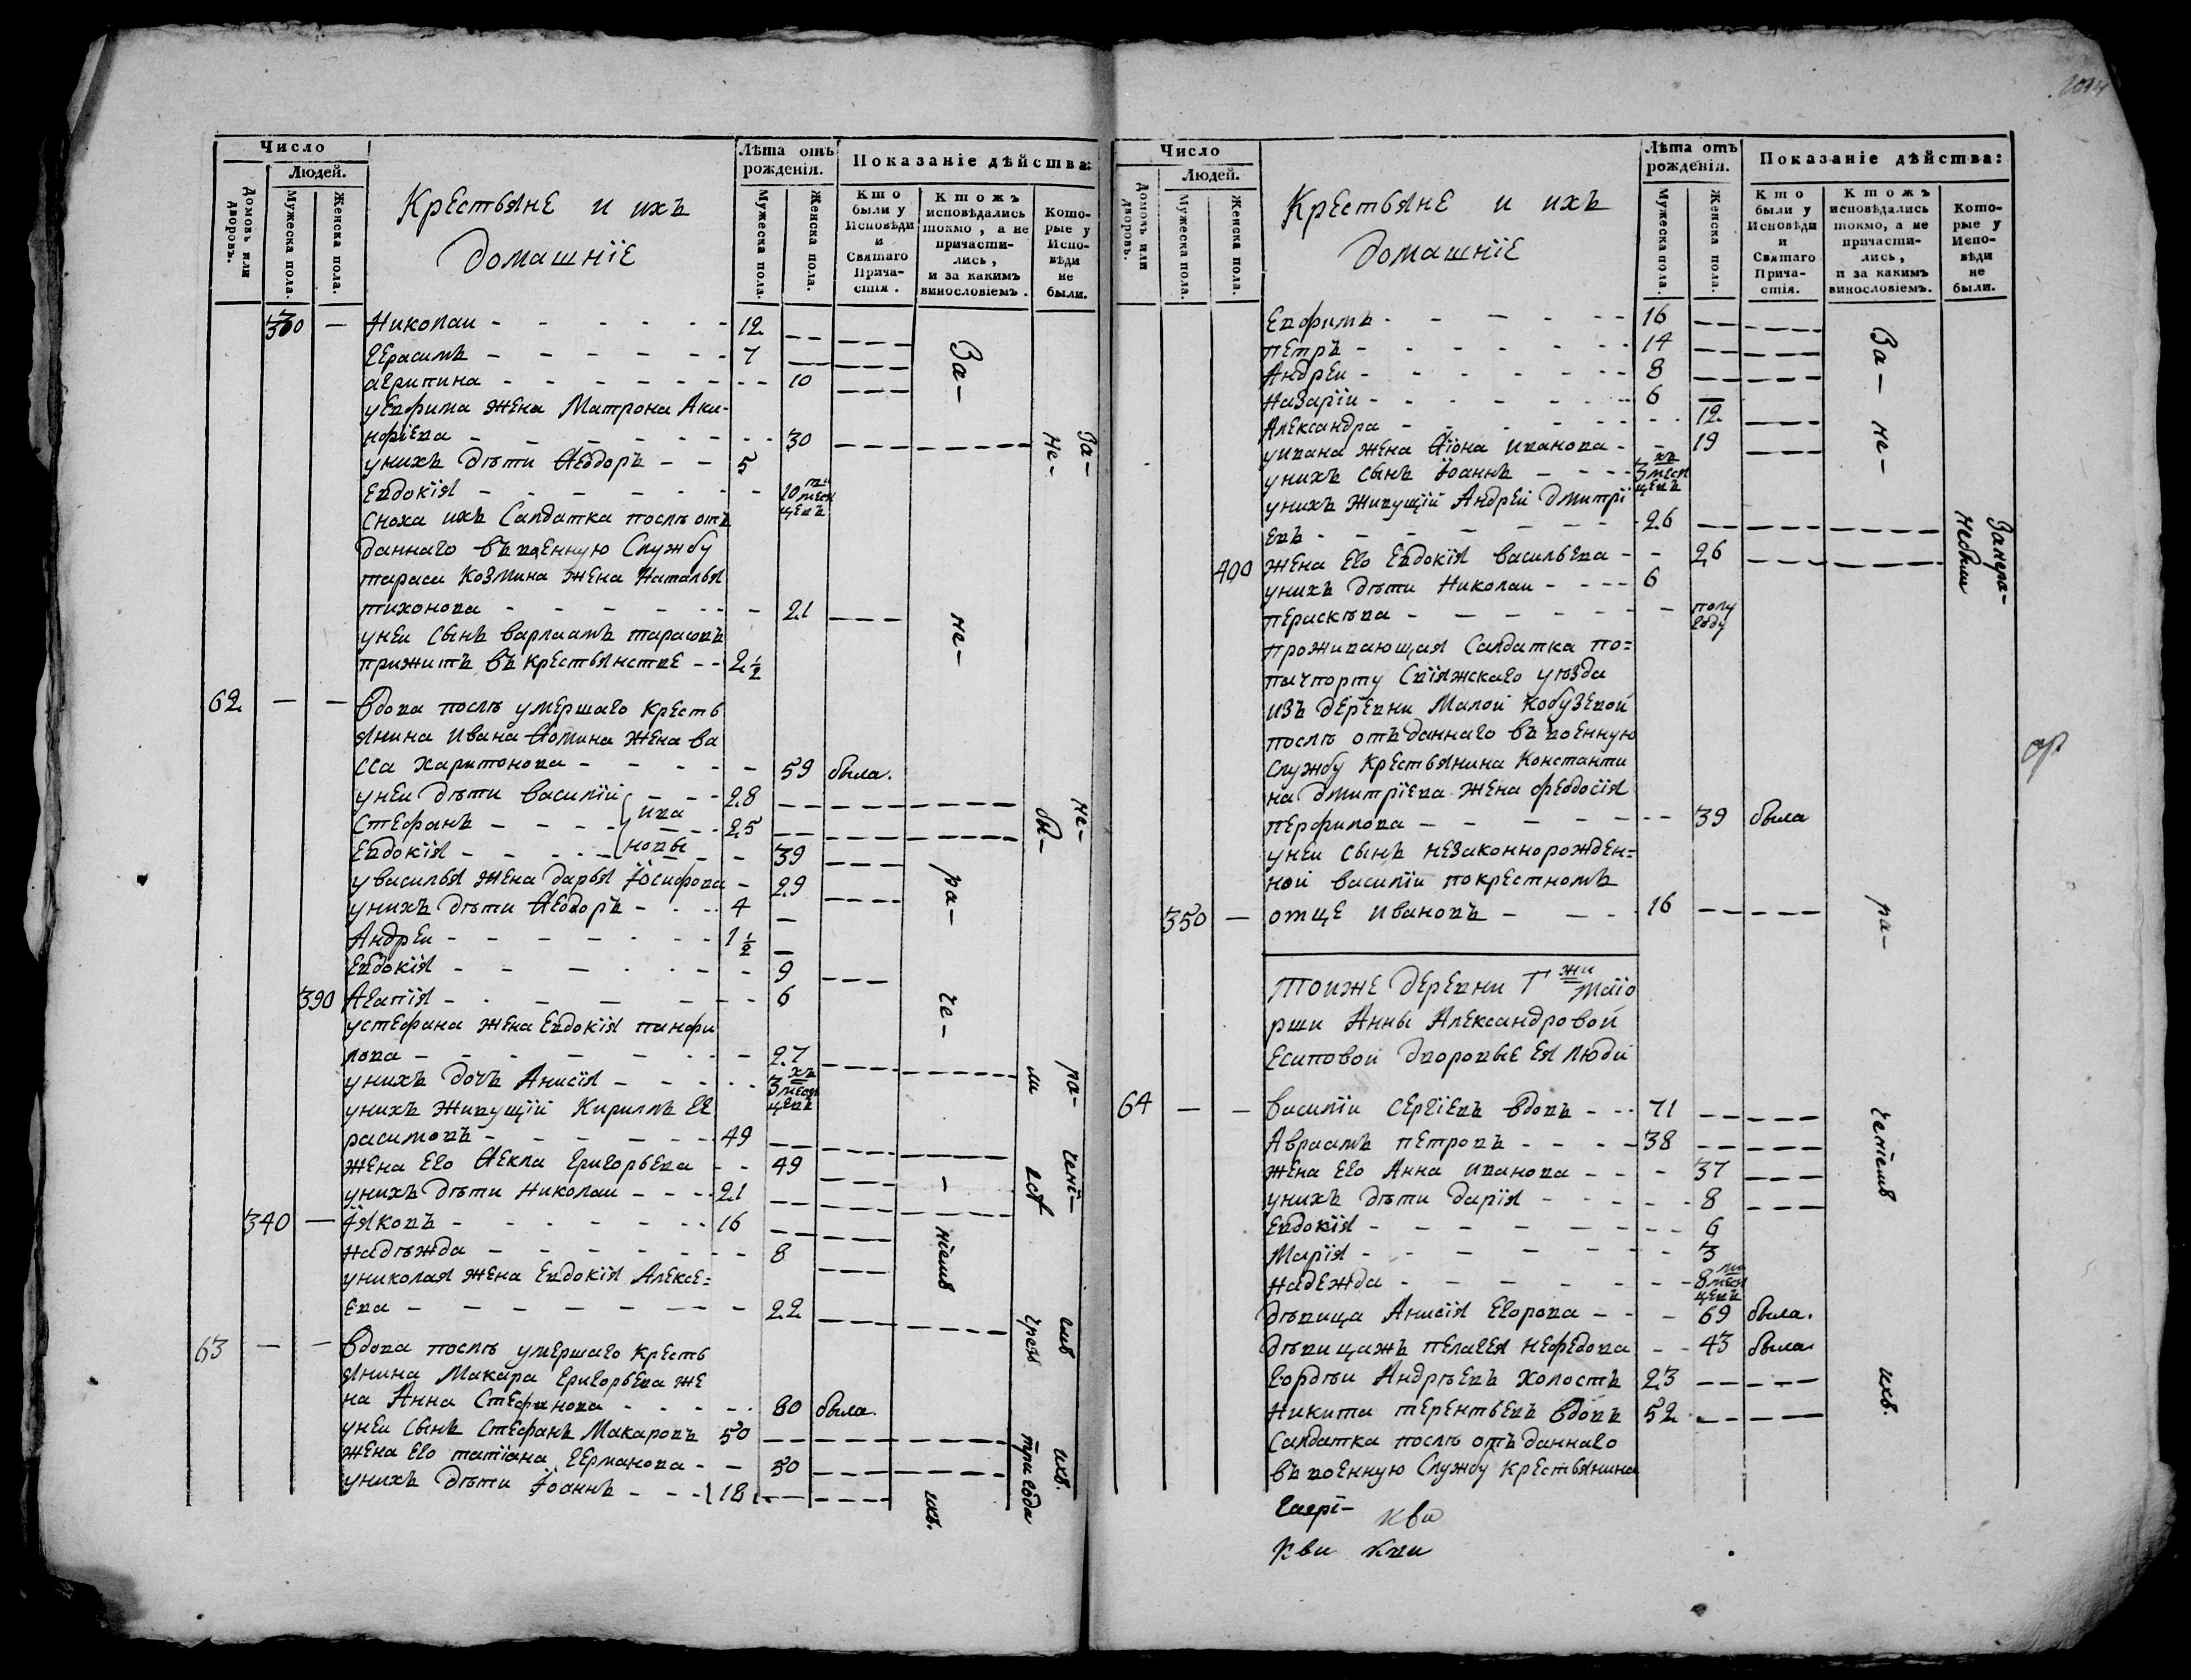 Число
Людей.
Домовъ или дворовъ.
Мужеска пола.
Женска пола.
Крестьяне и ихъ
домашнїе
Лѣта отъ рожденія.
Мужеска пола.
Женска пола.
Показаніе дѣйства:
Кто были у Исповѣди и Святаго Причастія.
Ктожъ исповѣдались токмо, а не причастились, и за какимъ винословіемъ.
Которые у Исповѣди не были.
Николаи - - - - - - 12
Герасимъ - - - - - - 7
агрипина - - - - - - 10
уЕвфима жена Матрона Аки-
нфіева - - - - - - 30
унихъ дѣти Ѳеодоръ - - 5
Евдокїя - - - - - - 10ти месяцевъ
Сноха ихъ Салдатка послѣ отъ
даннаго въ военную Службу
тараси Козмина жена Наталья
тихонова - - - - - - 21
унеи сынъ варлаамъ тарасовъ
прижитъ въ крестьянстве - - 2 1/2
62 — — Вдова послѣ умершаго кресть
янина Ивана Ѳомина жена ва
сса харитонова - - - - - 59 была.
унеи дѣти василїи - - - 28
Ива
Стефанъ - - - - - 25
новы
Евдокїя - - - - - 39
увасилья жена дарья Їосифова - 29
унихъ дѣти Ѳеодоръ - - - 4
Андреи - - - - - - - 1 1/2
Евдокїя - - - - - - - 9
390 Агапїя - - - - - - - 6
устефана жена Евдокїя панфи
лова - - - - - - - 27
унихъ дочь Анисїя - - - - - 3хъ месяцевъ
унихъ живущїй Кириллъ ге
расимовъ - - - - - - 49
жена его Ѳекла григорьева - - 49
унихъ дѣти Николаи - - - 21
340 — Їяковъ - - - - - - - 16
надѣжда - - - - - - - 8
униколая жена Евдокїя Алексе=
ева - - - - - - - 22
63 — — Вдова послѣ умершаго кресть
янина Макара григорьева же
на Анна Стефанова - - - - - 80 была.
унеи сынъ Стефанъ Макаровъ 50
жена его татїана германова - - 50
унихъ дѣти Їоаннъ - - - 18
За-
не-
ра-
че-
нїемъ
ихъ.
Не-
бы-
ли
За-
не-
ра-
ченї-
емъ
ихъ.
чрезъ
три года
Число
Людей.
Домовъ или дворовъ.
Мужеска пола.
Женска пола.
Крестьяне и ихъ
домашнїе
Лѣта отъ рожденія.
Мужеска пола.
Женска пола.
Показаніе дѣйства:
Кто были у Исповѣди и Святаго Причастія.
Ктожъ исповѣдались токмо, а не причастились, и за какимъ винословіемъ.
Которые у Исповѣди не были.
Евфимъ - - - - - - 16
петръ - - - - - - - 14
Андреи - - - - - - - 8
Назарїи - - - - - - - 6
Александра - - - - - - - 12
уивана жена Ѳїона иванова - - 19
унихъ сынъ Їоаннъ - - - - 3хъ месяцевъ
унихъ живущїй Андрей дмитрї
евъ - - - - - - - 26
400 жена его Евдокїя васильева - - 26
унихъ дѣти Николаи - - - - 6
перасковѣа - - - - - - - полу году
проживающая Салдатка по=
пачпорту Свїяжскаго уѣзда
изъ деревни Малой кобузевой
послѣ отъ даннаго въ военную
службу крестьянина Константи
на дмитрїева жена феодосїя
перфилова - - - - - - - 39 была
унеи сынъ незаконнорожден=
ной василїи покрестномъ
350 — отце Ивановъ - - - - 16
Тоиже деревни Гжи Маїо
рши Анны Александровой
Есиповой дворовые ея люди
64 — — василїи сергїевъ вдовъ - - - 71
Авраамъ петровъ - - - - 38
жена его Анна иванова - - - 37
унихъ дѣти дарїя - - - - - 8
Евдокїя - - - - - - - - 6
Марїя - - - - - - - 3
надежда - - - - - - - 8ми месяцевъ
дѣвица Анисїя Егорова - - - 69 была.
дѣвицажъ пелагея нефедова - - 43 была.
Гордѣи Андрѣевъ холостъ 23
Никита терентьевъ вдовъ 52
Салдатка послѣ отъ даннаго
въ военную Службу крестьянина
За-
не-
ра-
ченїемъ
ихъ.
небыли